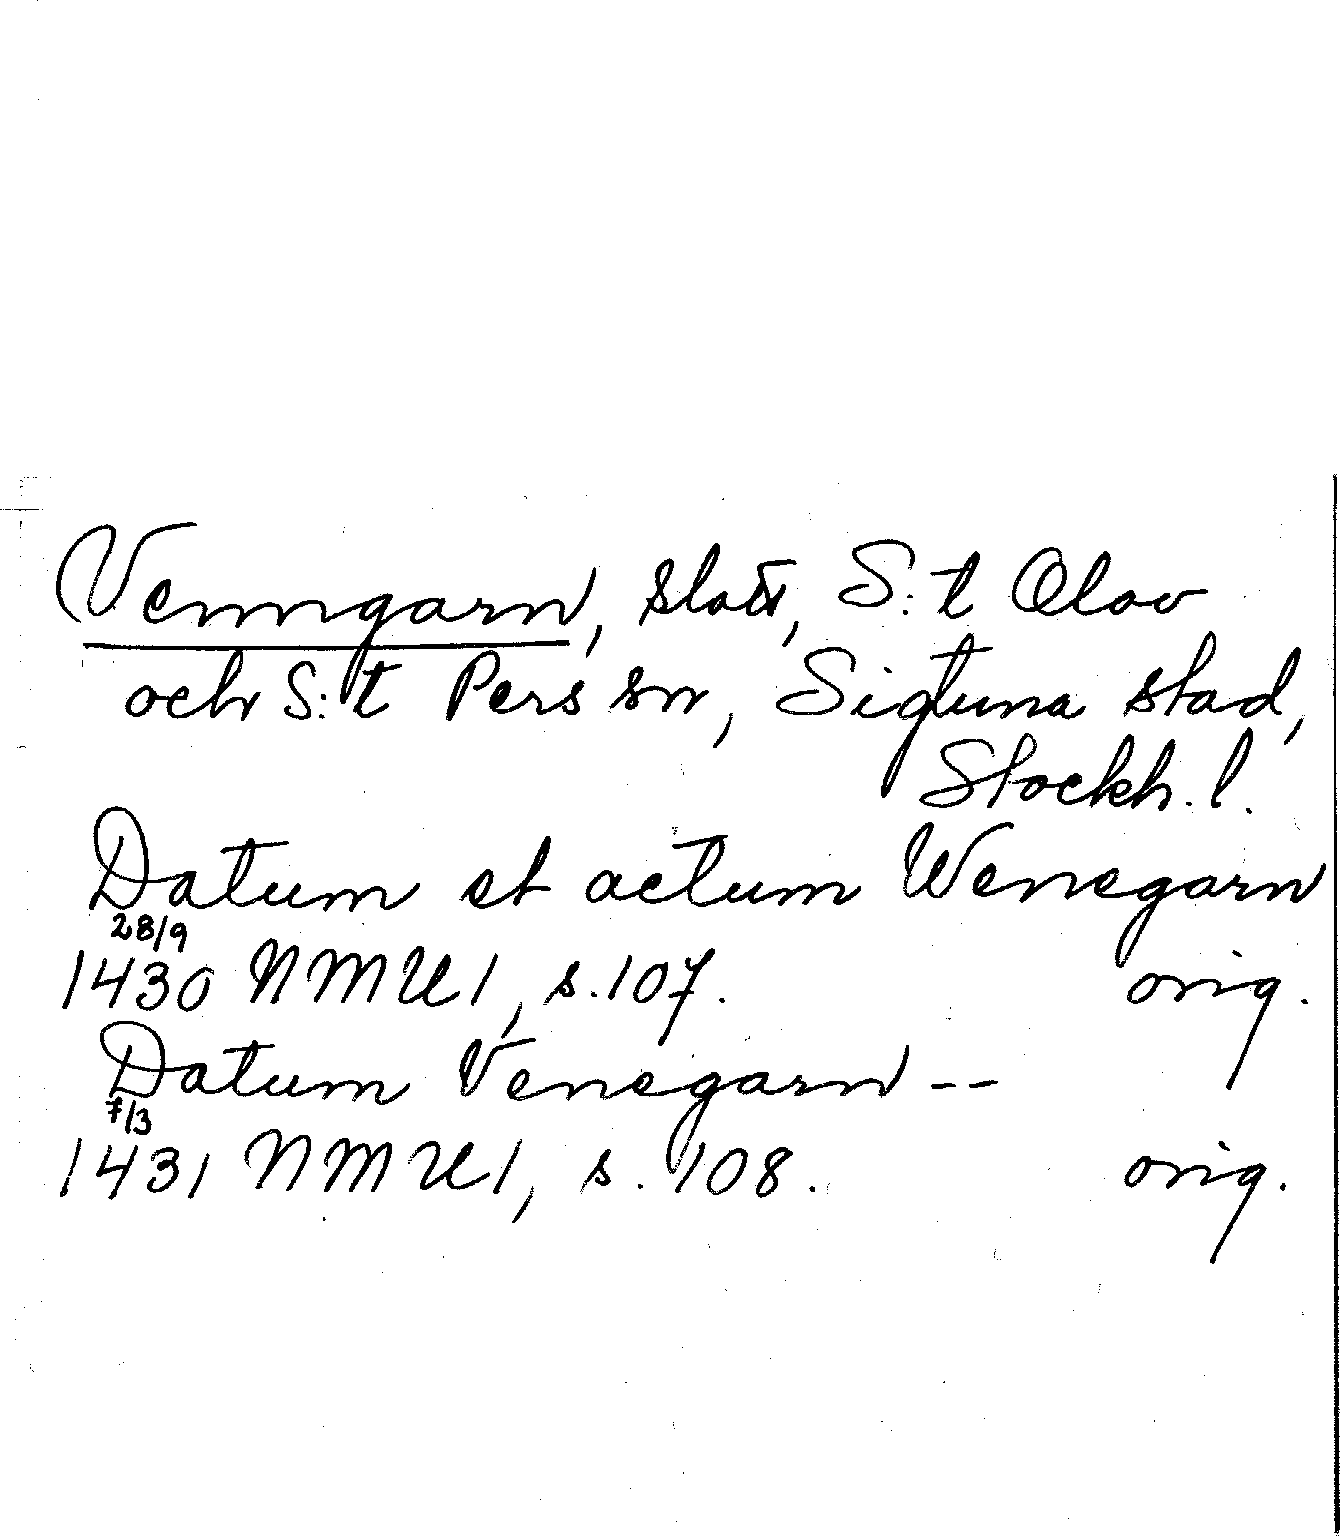 Venngarn, slott, S:t Olov
och S:t Pers sn, Sigtuna stad,
Stockh. l.
Datum et actum Wenegarn
28/9
1430 NMU 1, s. 107. orig.
Datum Venegarn --
7/3
1431 NMU 1, s. 108. orig.